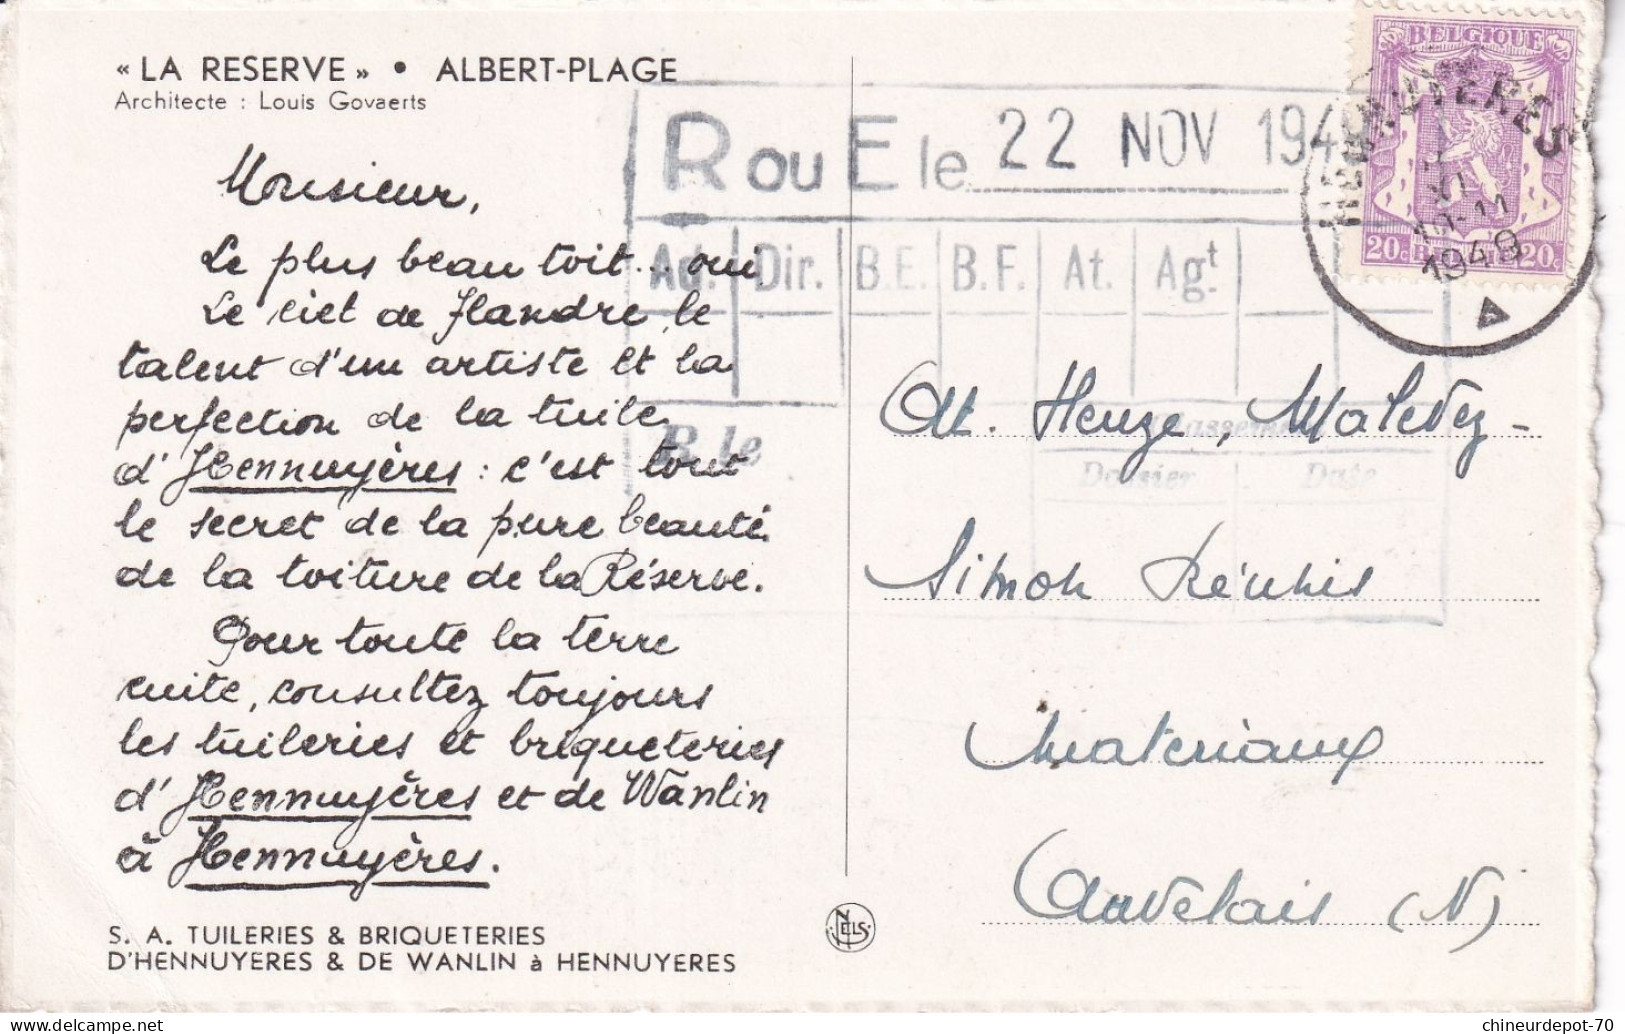 « LA RESERVE » • ALBERT-PLAGE
Architecte : Louis Govaerts
Monsieur,
Le plus beau toit... oui.
Le ciel de Flandre, le
talent d'un artiste et la
perfection de la tuile
d'Hennuyères : c'est tout
le secret de la pure beauté
de la toiture de la Réserve.
Pour toute la terre
cuite, consultez toujours
les tuileries et briqueteries
d'Hennuyères et de Wanlin
à Hennuyères.
S. A. TUILERIES & BRIQUETERIES
D'HENNUYERES & DE WANLIN à HENNUYERES
NELS
BELGIQUE
20c BELGIË 20c
HENNUYERES
XI
1949
R ou E le 22 NOV 194
Ad. Dir. B.E. B.F. At. Agt.
R le
Classement
Dossier Date
Henze, Malevez-
Simon Réunis
Materiaux
Auvelais (N)
chineurdepot-70